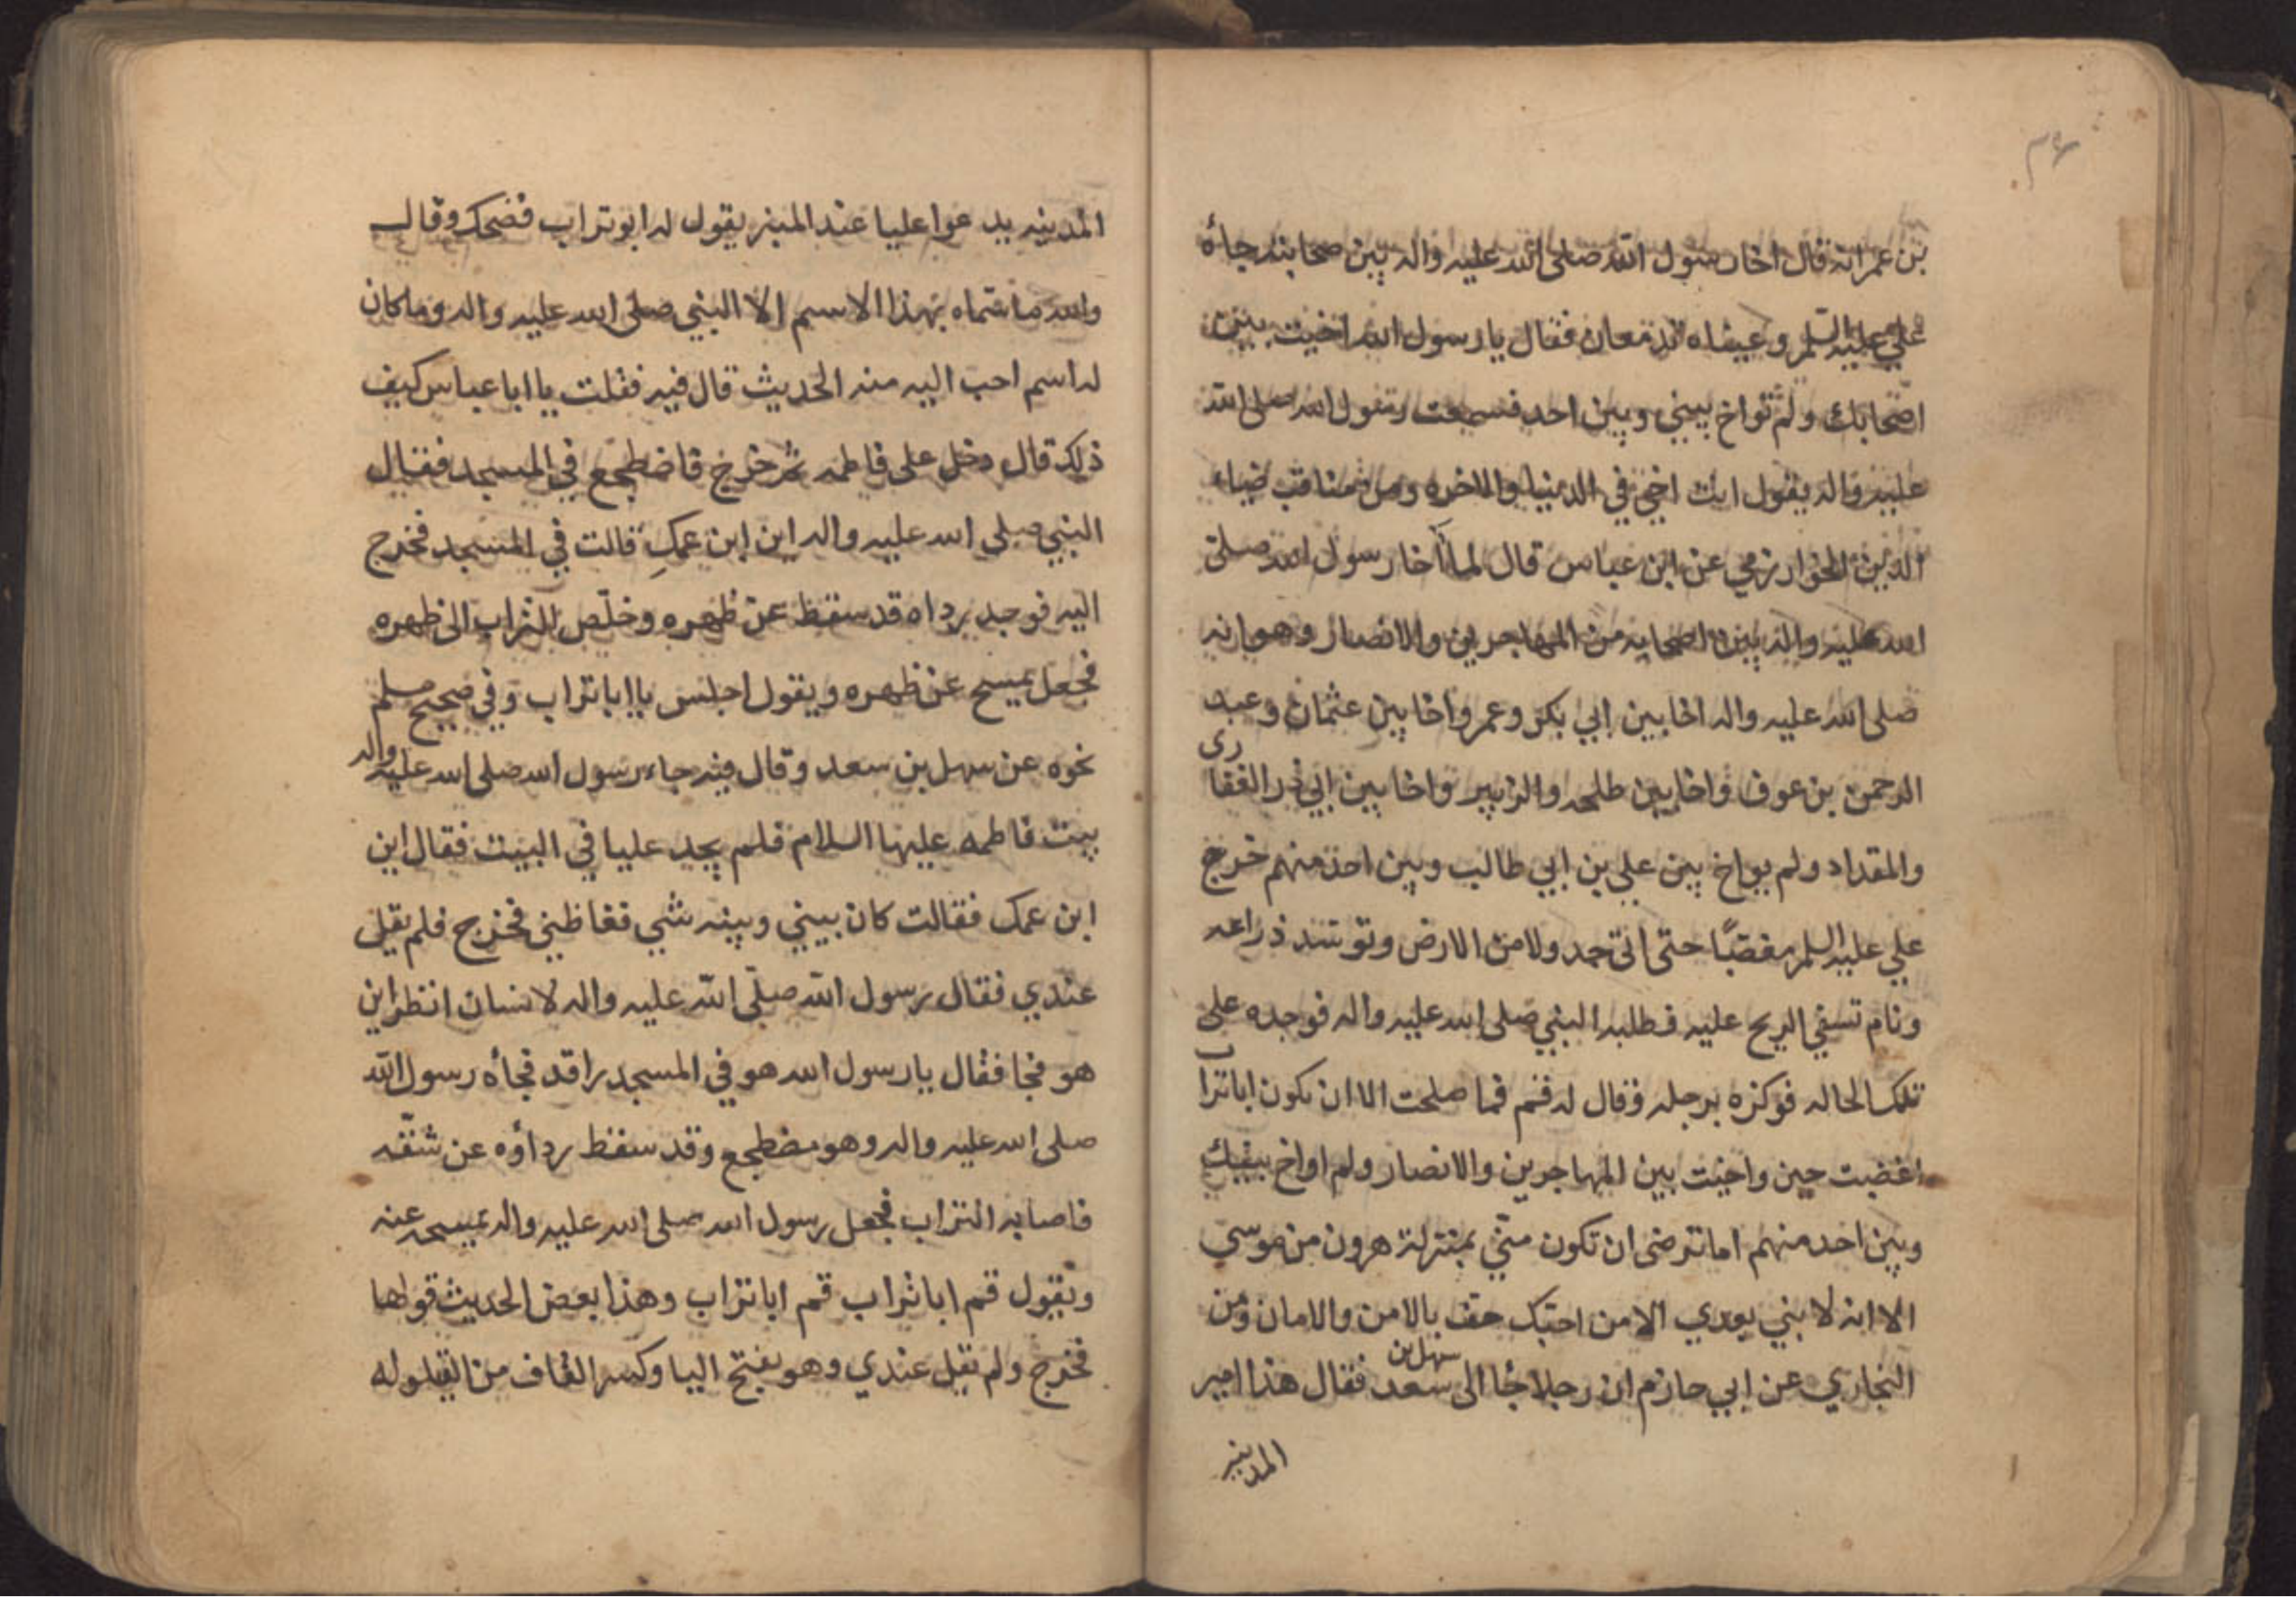 ٣۶
بن عمر انه قال اخا رسول الله صلى الله عليه واله بين صحابته جاءه
علي عليه السلم وعيناه تدمعان فقال يا رسول الله اخيت بين
اصحابك ولم تواخ بيني وبين احد فسمعت رسول الله صلى الله
عليه واله يقول انت اخي في الدنيا والاخره ومن مناقب ضياء
الدين الخوارزمي عن ابن عباس قال لما آخا رسول الله صلى
الله عليه واله بين اصحابه من المهاجرين والانصار وهو انه
صلى الله عليه واله اخا بين ابي بكر وعمر واخا بين عثمان وعبد
الرحمن بن عوف واخا بين طلحه والزبير واخا بين ابي ذر الغفاري
والمقداد ولم يواخ بين علي بن ابي طالب وبين احد منهم خرج
علي عليه السلم مغضبًا حتى اتى جدولا من الارض وتوسد ذراعه
ونام تسفي الريح عليه فطلبه النبي صلى الله عليه واله فوجده على
تلك الحاله فوكزه برجله وقال له قم فما صلحت الا ان تكون اباتراب
اغضبت حين واخيت بين المهاجرين والانصار ولم اواخ بينك
وبين احد منهم اما ترضى ان تكون منّي بمنزلة هرون من موسي
الا انه لا نبي بعدي الا من احبّك حف بالامن والامان ومن
البخاري عن ابي حازم ان رجلا جأ الى سهل بن سعد فقال هذا امير
المدينه
المدينه يدعوا عليا عند المنبر يقول له ابو تراب فضحك وقال
والله ما سماه بهذا الاسم الا النبي صلى الله عليه واله وما كان
له اسم احب اليه منه الحديث قال فيه فقلت يا ابا عباس كيف
ذلك قال دخل على فاطمه ثم خرج فاضطجع في المسجد فقال
النبي صلى الله عليه واله اين ابن عمكِ قالت في المسجد فخرج
اليه فوجد رداه قد سقط عن ظهره وخلّص التراب الى ظهره
فجعل يمسح عن ظهره ويقول اجلس يا ابا تراب وفي صحيح مسلم
نحوه عن سهل بن سعد وقال فيه جاء رسول الله صلى الله عليه واله
بيت فاطمه عليها السلام فلم يجد عليا في البيت فقال اين
ابن عمك فقالت كان بيني وبينه شي فغاظني فخرج فلم يقل
عندي فقال رسول الله صلّى الله عليه واله لانسان انظر اين
هو فجا فقال يا رسول الله هو في المسجد راقد فجأه رسول الله
صلى الله عليه واله وهو مضطجع وقد سقط رداؤه عن شقّه
فاصابه التراب فجعل رسول الله صلى الله عليه واله يمسحه عنه
ويقول قم ابا تراب قم ابا تراب وهذا بعض الحديث قولها
فخرج ولم يقل عندي وهو بفتح اليا وكسر القاف من القيلوله